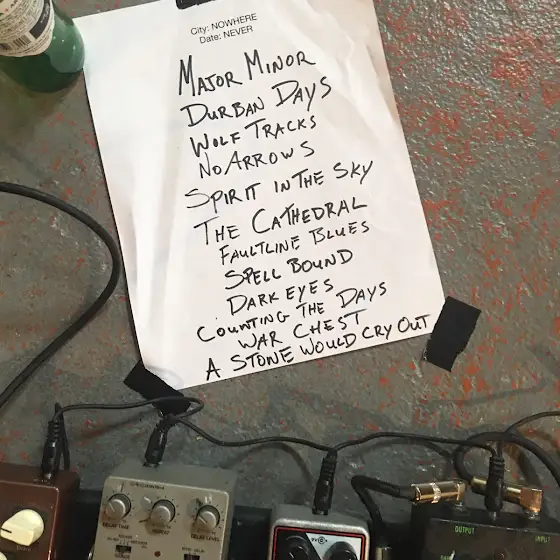 City: NOWHERE
Date: NEVER
MAJOR MINOR
DURBAN DAYS
WOLF TRACKS
NO ARROWS
SPIRIT IN THE SKY
THE CATHEDRAL
FAULTLINE BLUES
SPELL BOUND
DARK EYES
COUNTING THE DAYS
WAR CHEST
A STONE WOULD CRY OUT
DELAY TIME
REPEAT
DELAY LEVEL
OUTPUT
INPUT